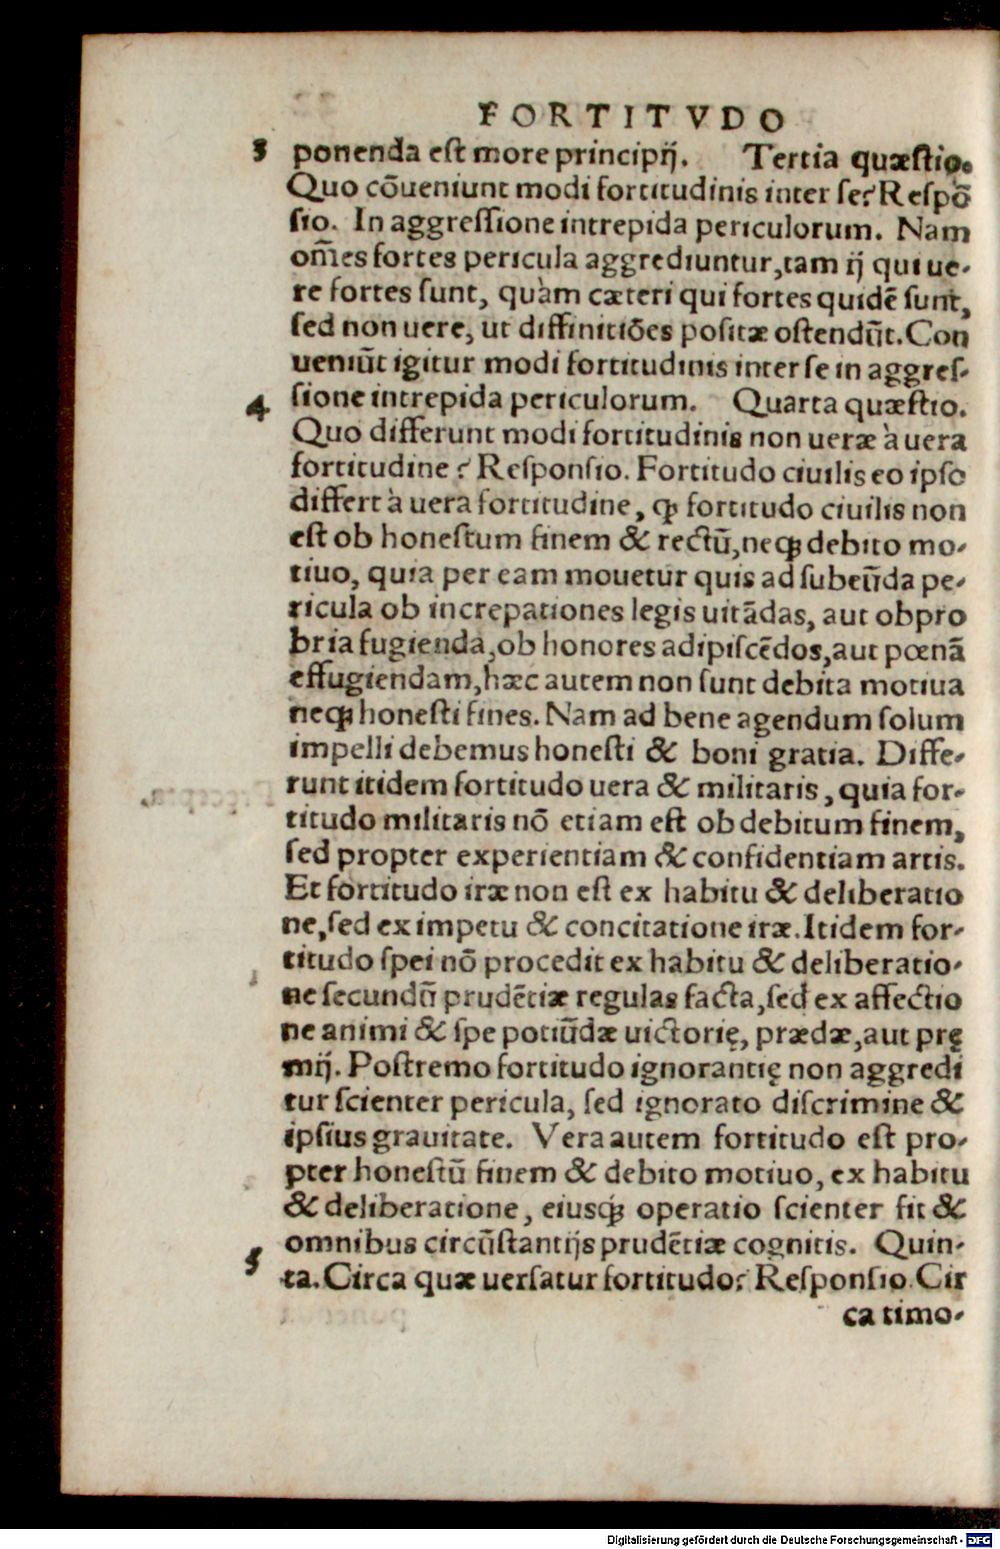 FORTITVDO
3 ponenda eſt more principij. Tertia quæſtio.
Quo cōueniunt modi fortitudinis inter ſe? Reſpō
ſio. In aggreſſione intrepida periculorum. Nam
om̄es fortes pericula aggrediuntur, tam ij qui ue-
re fortes ſunt, quàm cæteri qui fortes quidē ſunt,
ſed non uere, ut diffinitiōes poſitæ oſtendūt. Con
ueniūt igitur modi fortitudinis inter ſe in aggreſ-
4 ſione intrepida periculorum. Quarta quæſtio.
Quo differunt modi fortitudinis non ueræ à uera
fortitudine? Reſponſio. Fortitudo ciuilis eo ipſo
differt à uera fortitudine, ꝙ fortitudo ciuilis non
eſt ob honeſtum finem & rectū, neqꝫ debito mo-
tiuo, quia per eam mouetur quis ad ſubeūda pe-
ricula ob increpationes legis uitādas, aut obpro
bria fugienda, ob honores adipiſcēdos, aut pœnā
effugiendam, hæc autem non ſunt debita motiua
neqꝫ honeſti fines. Nam ad bene agendum ſolum
impelli debemus honeſti & boni gratia. Diffe-
runt itidem fortitudo uera & militaris, quia for-
titudo militaris nō etiam eſt ob debitum finem,
ſed propter experientiam & confidentiam artis.
Et fortitudo iræ non eſt ex habitu & deliberatio
ne, ſed ex impetu & concitatione iræ. Itidem for-
titudo ſpei nō procedit ex habitu & deliberatio-
ne ſecundū prudētiæ regulas facta, ſed ex affectio
ne animi & ſpe potiūdæ uictorię, prædæ, aut prę
mij. Poſtremo fortitudo ignorantię non aggredi
tur ſcienter pericula, ſed ignorato diſcrimine &
ipſius grauitate. Vera autem fortitudo eſt pro-
pter honeſtū finem & debito motiuo, ex habitu
& deliberatione, eiusqꝫ́ operatio ſcienter fit &
omnibus circūſtantijs prudētiæ cognitis. Quin-
5 ta. Circa quæ uerſatur fortitudo? Reſponſio. Cir
ca timo-
Digitalisierung gefördert durch die Deutsche Forschungsgemeinschaft - DFG